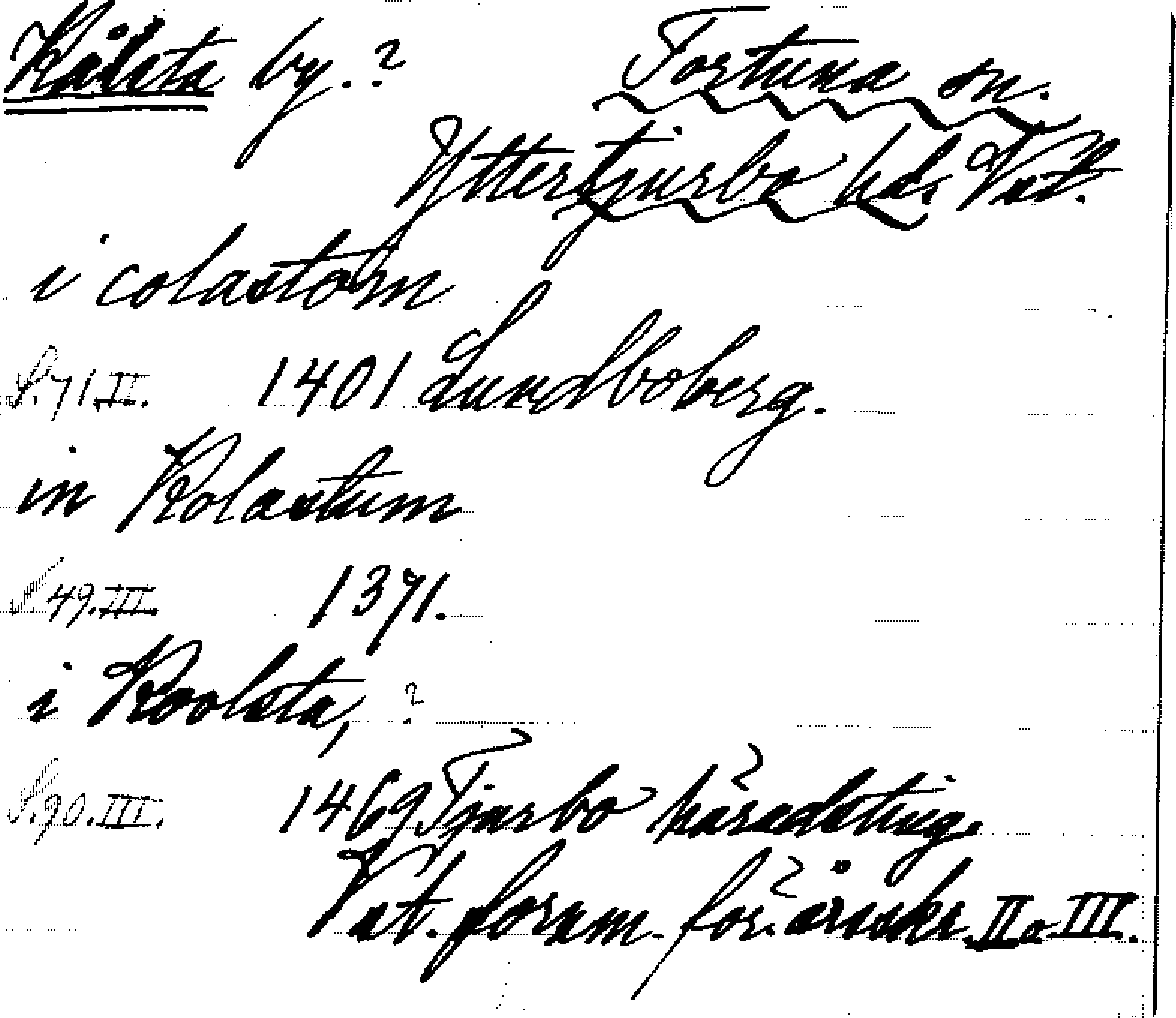 Kålsta by.? Tortuna sn.
Yttertjurbo hd. Vstl.
i colastom
S.71.II. 1401 Lundboberg.
in Kolastum
S.49.III. 1371.
i Koolsta, ?
S.90.III. 1469 Tjurbo häradsting.
Vst. fornm. för. årsskr. II o III.